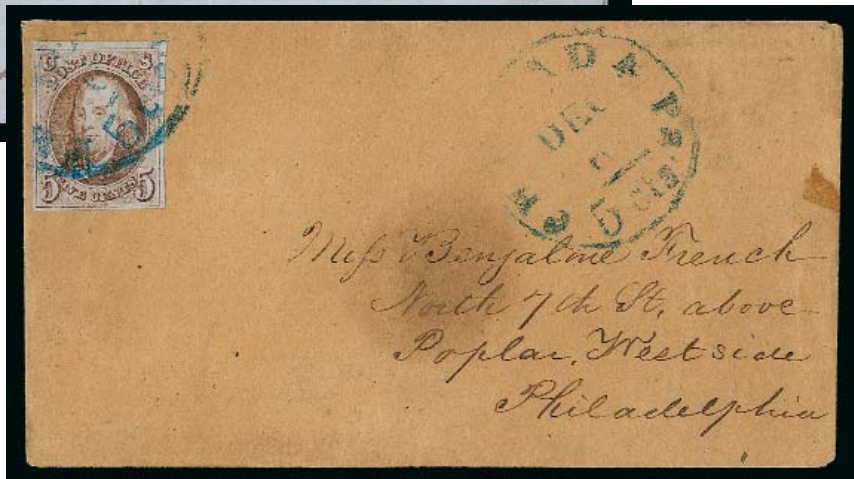 U S
POST OFFICE
FIVE CENTS
5 5
5 cts
DEC
5 cts.
Miss Bengaline French
North 7th St. above
Poplar, West side
Philadelphia